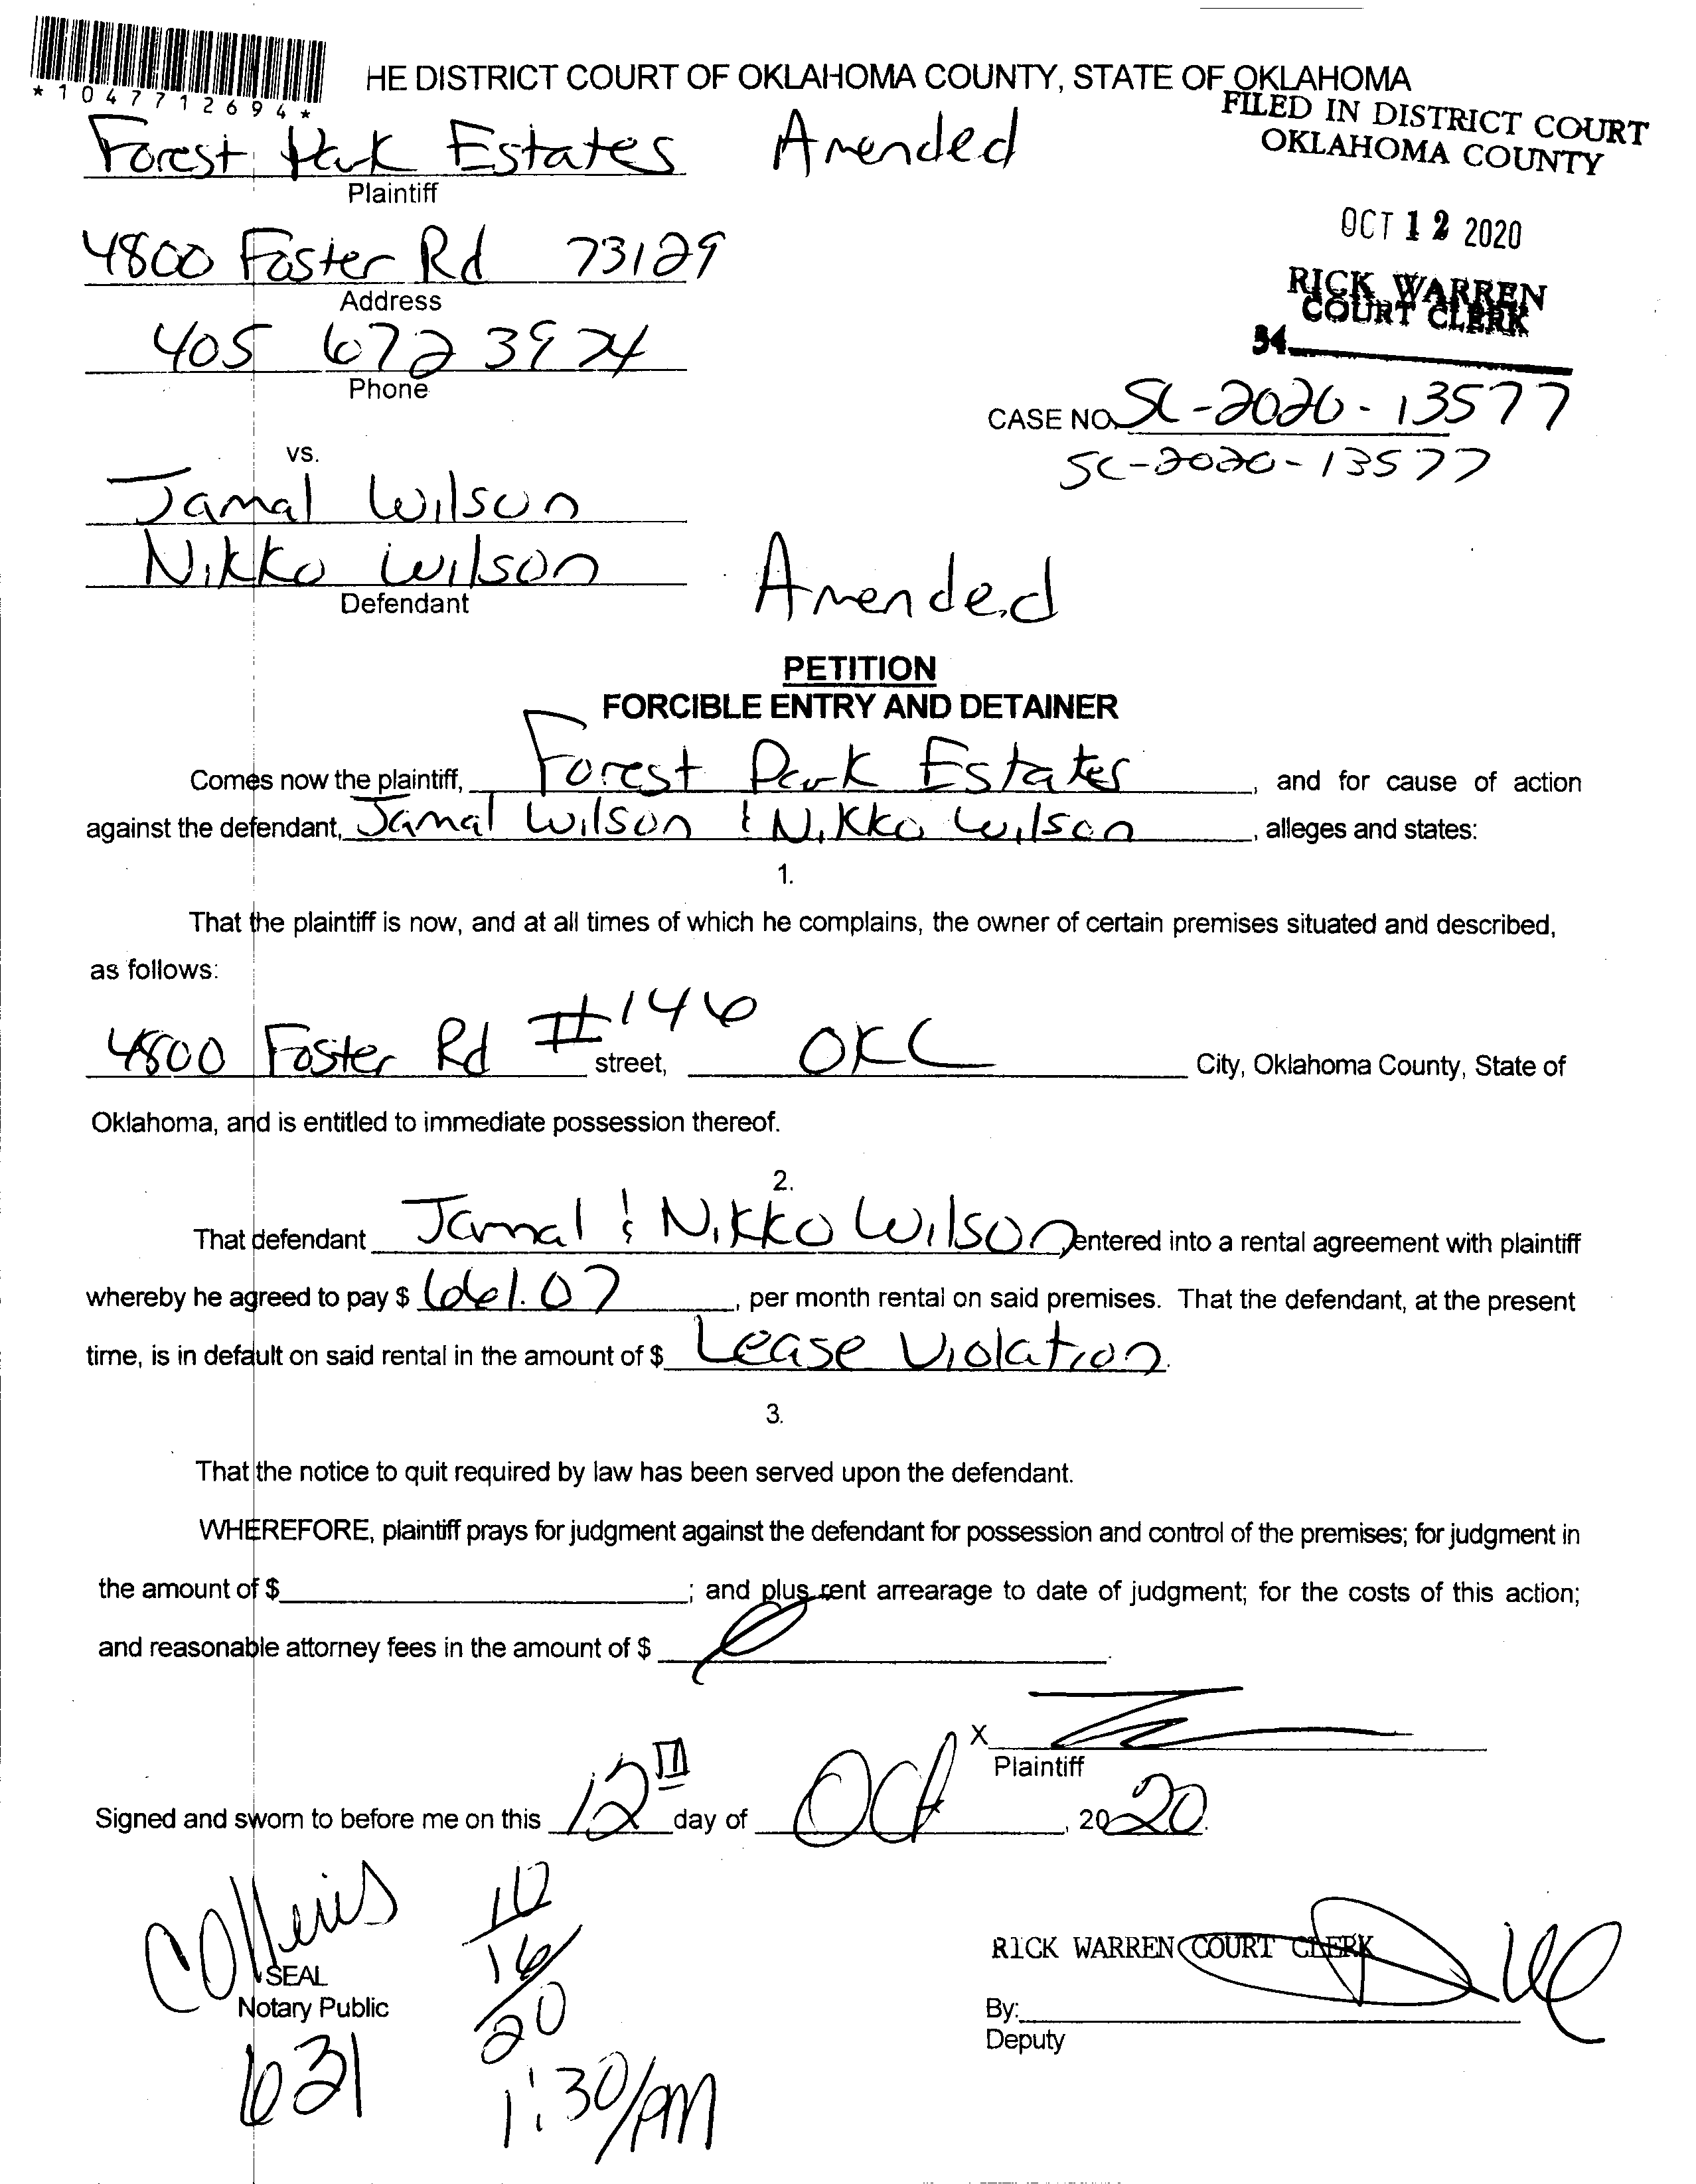 *1047712694*
HE DISTRICT COURT OF OKLAHOMA COUNTY, STATE OF OKLAHOMA
FILED IN DISTRICT COURT
OKLAHOMA COUNTY
Forest Park Estates Amended
Plaintiff
OCT 12 2020
4800 Foster Rd 73129
Address
RICK WARREN
COURT CLERK
405 672 3974
34
Phone
CASE NO. SC-2020-13577
SC-2020-13577
vs.
Jamal Wilson
Nikko Wilson
Defendant
Amended
PETITION
FORCIBLE ENTRY AND DETAINER
Comes now the plaintiff, Forest Park Estates, and for cause of action
against the defendant, Jamal Wilson & Nikko Wilson, alleges and states:
1.
That the plaintiff is now, and at all times of which he complains, the owner of certain premises situated and described,
as follows:
4800 Foster Rd #146 street, OKC City, Oklahoma County, State of
Oklahoma, and is entitled to immediate possession thereof.
2.
That defendant Jamal & Nikko Wilson, entered into a rental agreement with plaintiff
whereby he agreed to pay $ 661.07, per month rental on said premises. That the defendant, at the present
time, is in default on said rental in the amount of $ Lease Violation.
3.
That the notice to quit required by law has been served upon the defendant.
WHEREFORE, plaintiff prays for judgment against the defendant for possession and control of the premises; for judgment in
the amount of $ ; and plus rent arrearage to date of judgment; for the costs of this action;
and reasonable attorney fees in the amount of $ .
X
Plaintiff
Signed and sworn to before me on this 12 day of Oct, 2020.
10
16
20
RICK WARREN COURT CLERK
SEAL
Notary Public
By:
Deputy
631
1:30/pm